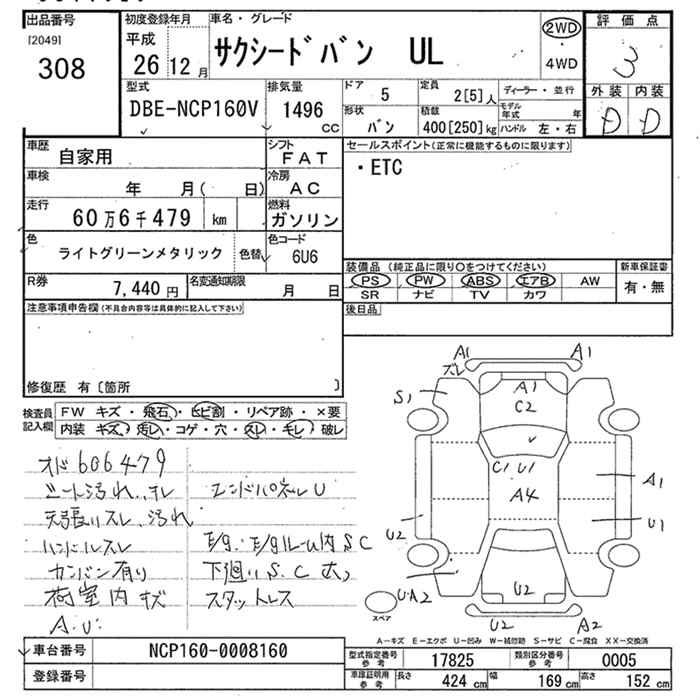 出品番号
[2049]
308
初度登録年月
平成
26 12月
車名・グレード
サクシードバン UL
2WD
・
4WD
評価点
3
外装 内装
D D
型式
DBE-NCP160V
排気量
1496
CC
ドア
5
定員
2[5]人
ディーラー・並行
形状
バン
積載
400[250]kg
モデル年式 年
ハンドル 左・右
車歴
自家用
シフト
FAT
車検
年 月( 日)
冷房
AC
走行
60万6千479 km
燃料
ガソリン
色
ライトグリーンメタリック
色替
色コード
6U6
R券
7,440 円
名変通知期限
月 日
セールスポイント(正常に機能するものに限ります)
・ETC
装備品(純正品に限り○をつけてください)
PS PW ABS エアB AW
SR ナビ TV カワ
新車保証書
有・無
後日品
注意事項申告欄(不具合内容等は具体的に記入して下さい)
修復歴 有〔箇所 〕
検査員記入欄
FW キズ・飛石・ヒビ割・リペア跡・×要
内装 キズ・汚レ・コゲ・穴・スレ・キレ・破レ
オド606479
シート汚れ、キレ
天張りスレ、汚れ
ハンドルスレ
カンバン有り
荷室内キズ
A.U.
エンドパネルU
E/g. E/gルーム内S.C
下廻りS.C 大
スタットレス
A1 A1
ズレ
A1
C2
S1
C1 U1
A4
A1
U1
U2
UA2
U2
U2 A2
スペア
A-キズ E-エクボ U-凹み W-補修跡 S-サビ C-腐食 XX-交換済
車台番号
NCP160-0008160
登録番号
型式指定番号
参考
17825
類別区分番号
参考
0005
車庫証明用
参考
長さ 424 cm
幅 169 cm
高さ 152 cm